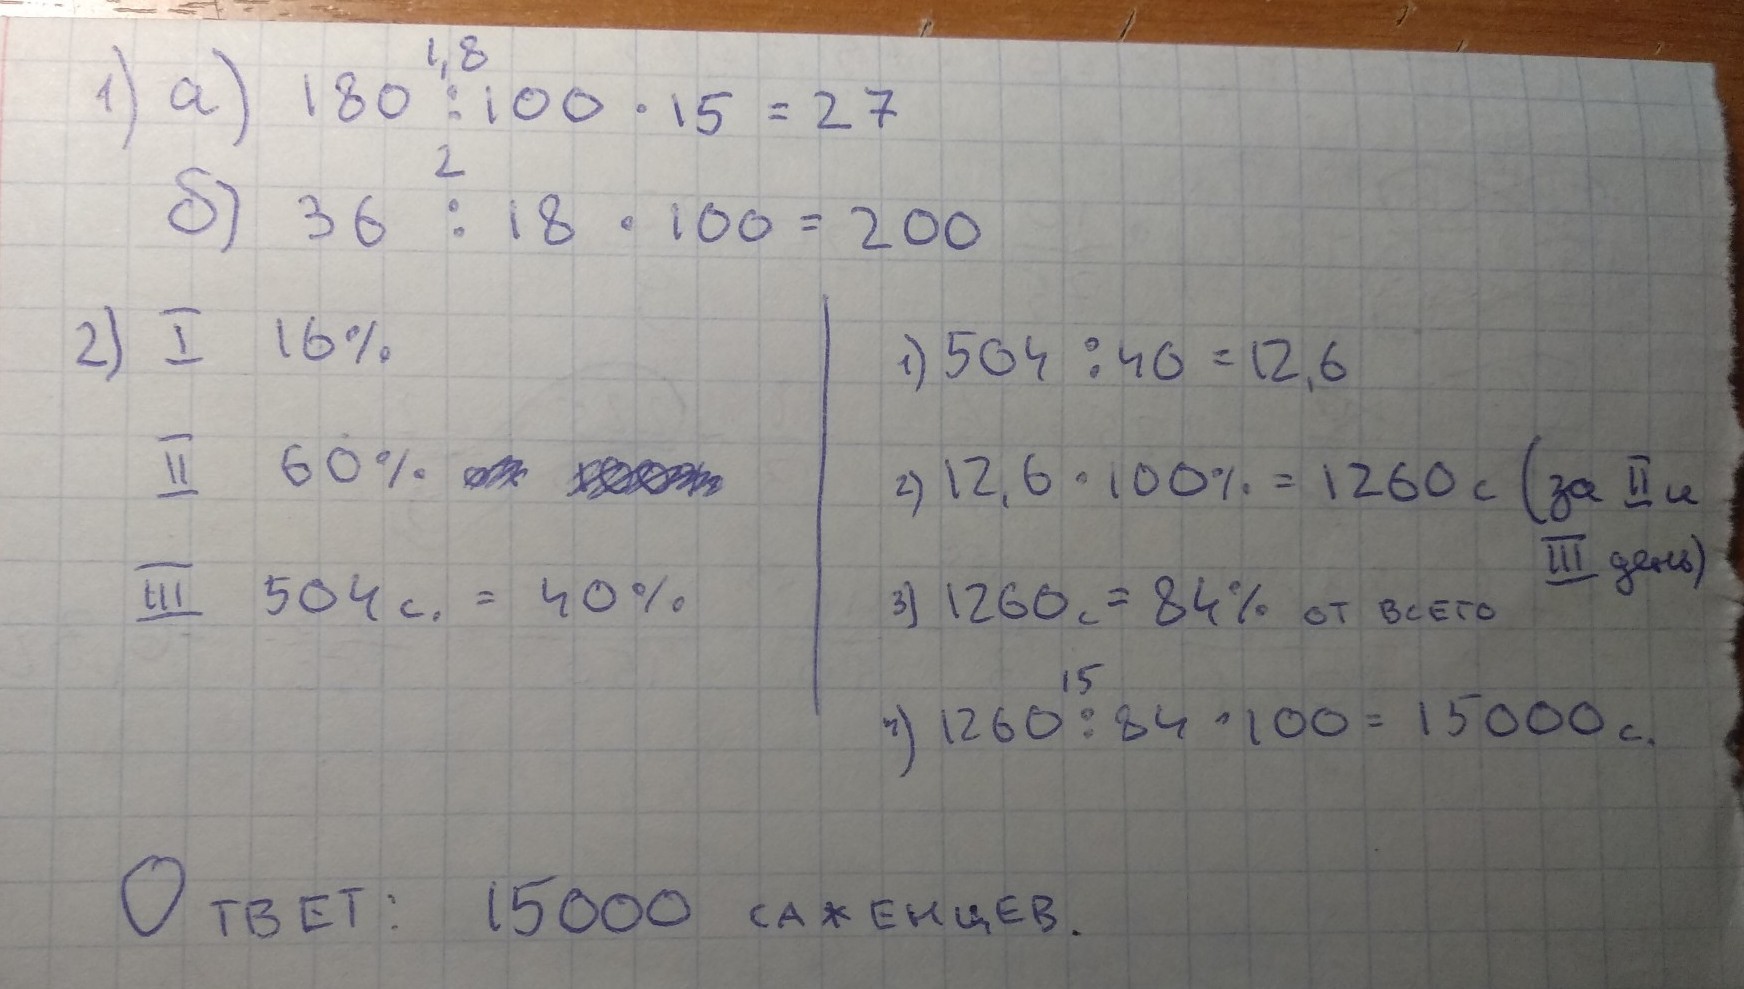 1) а) 180 : 100 · 15 = 27
1,8
б) 36 : 18 · 100 = 200
2
2) I 16%
II 60%
III 504 с. = 40%
1) 504 : 40 = 12,6
2) 12,6 · 100% = 1260 с (за II и
III день)
3) 1260 с = 84% от всего
4) 1260 : 84 · 100 = 15000 с.
15
Ответ: 15000 саженцев.